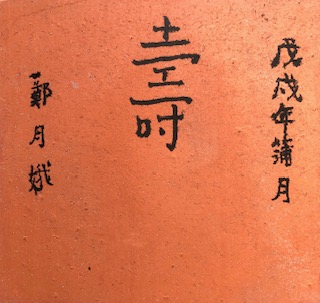 戊戌年蒲月
壽
鄭月娥